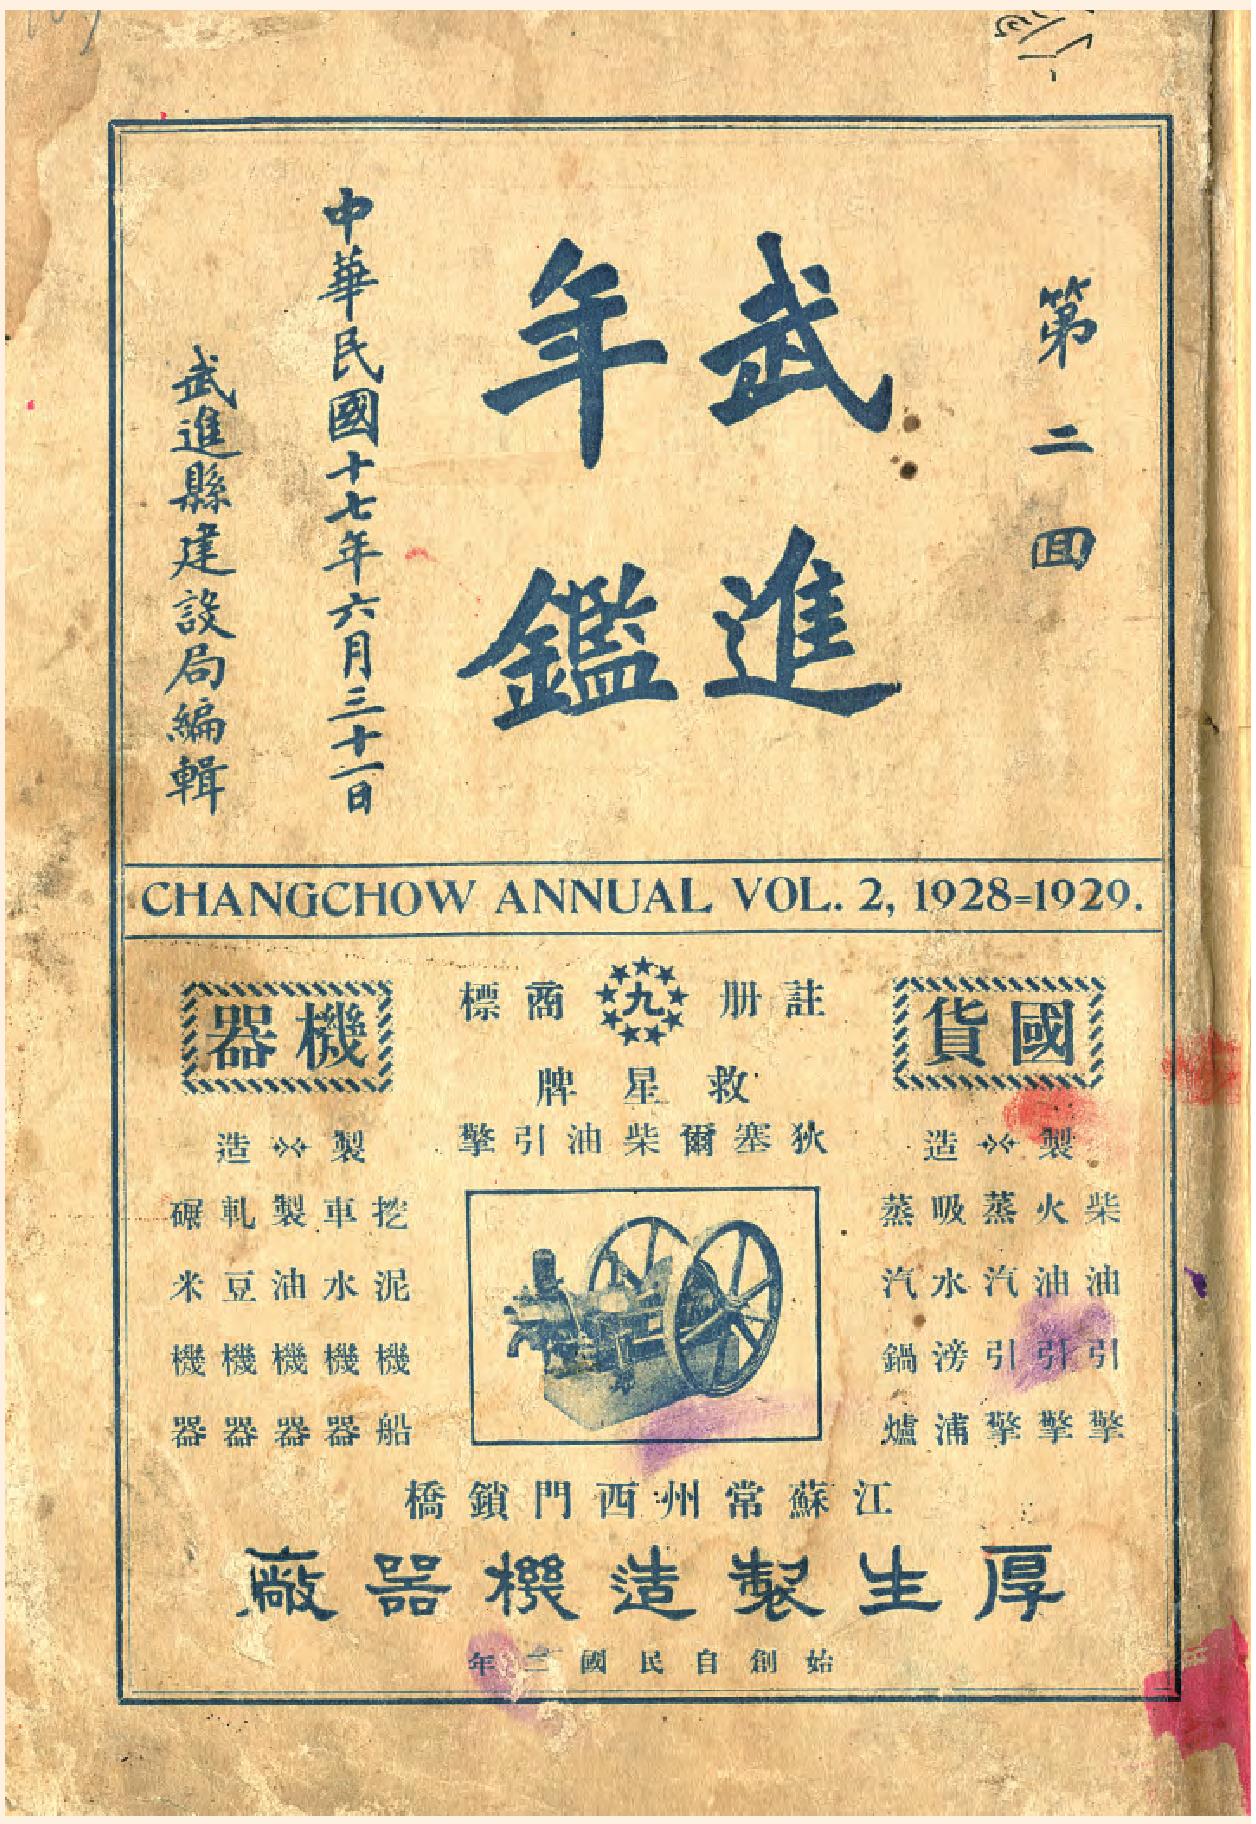 第二回
武進
年鑑
中華民國十七年六月三十一日
武進縣建設局編輯
CHANGCHOW ANNUAL VOL. 2, 1928=1929.
國貨
製造
柴油引擎
火油引擎
蒸汽引擎
吸水滂浦
蒸汽鍋爐
註册 九 商標
救星牌
狄塞爾柴油引擎
機器
製造
挖泥機船
車水機器
製油機器
軋豆機器
碾米機器
江蘇常州西門鎖橋
厚生製造機器廠
始創自民國年